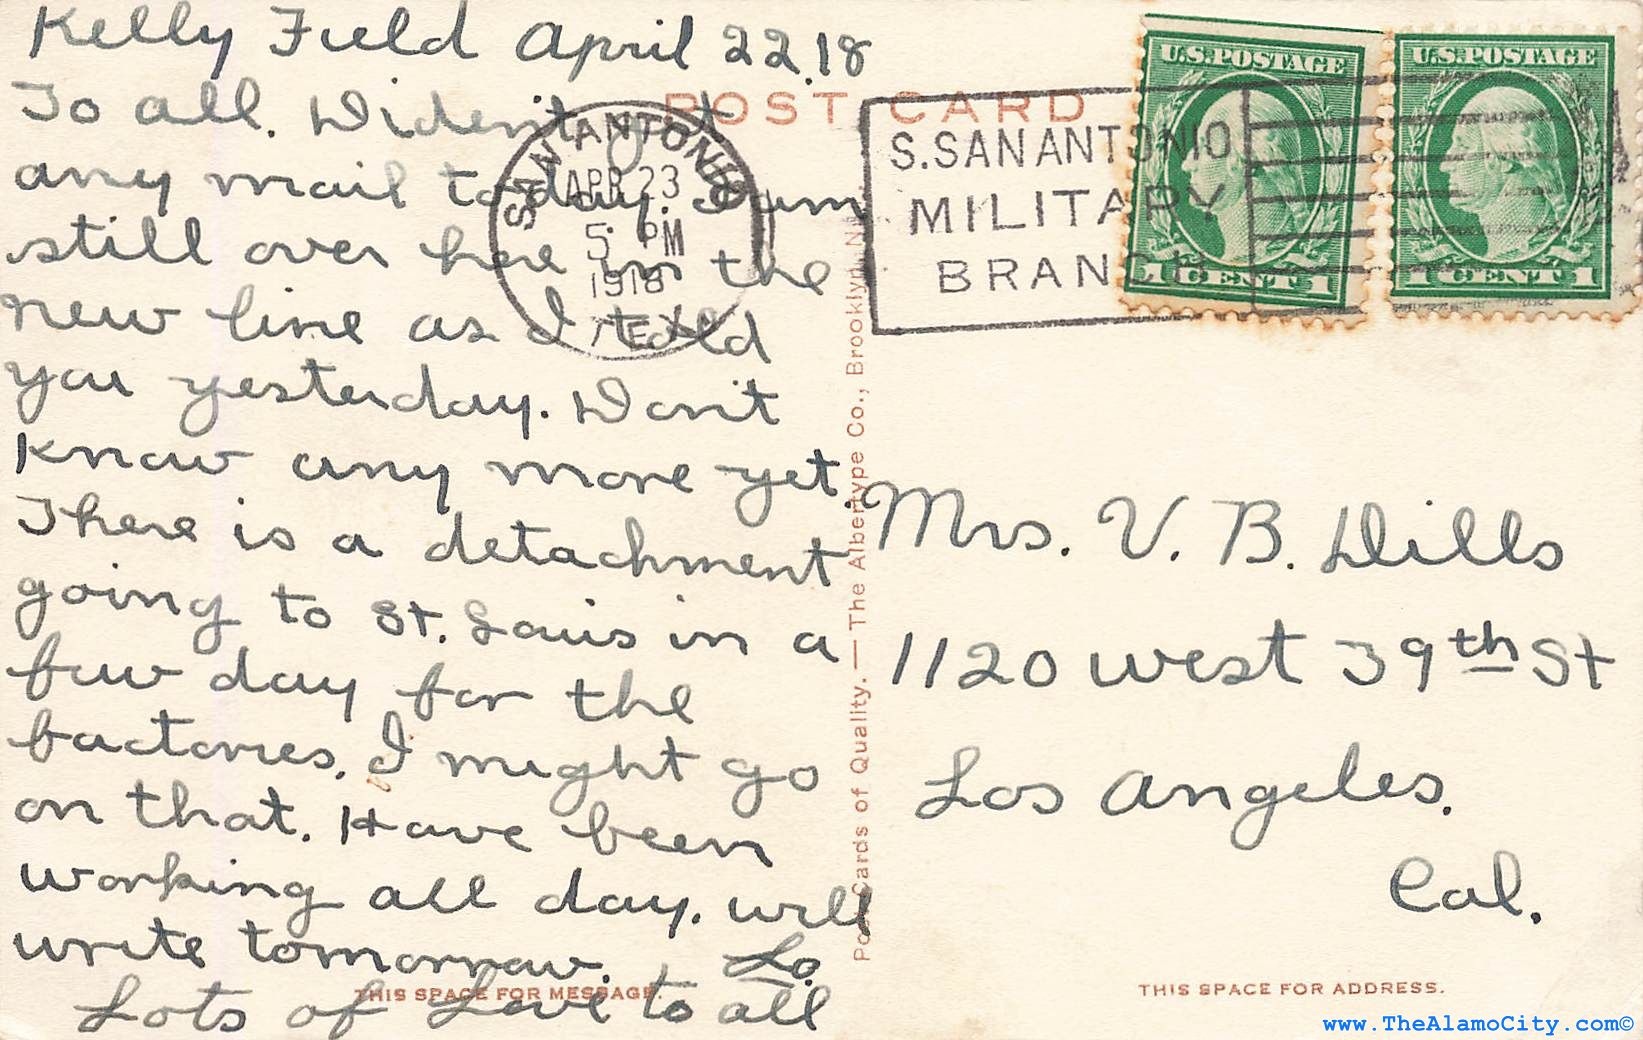 Kelly Field April 22.18
To all. Diden't get
any mail to day. I am
still over here in the
new line as I told
you yesterday. Don't
know any more yet.
There is a detachment
going to St. Louis in a
few day for the
factories. I might go
on that. Have been
working all day. will
write tomorrow. Lo
Lots of Love to all
THIS SPACE FOR MESSAGE.
POST CARD
SAN ANTONIO
APR 23
5 PM
1918
TEX
S. SAN ANTONIO
MILITARY
BRANCH
U.S. POSTAGE
1 CENT 1
U.S. POSTAGE
1 CENT 1
Post Cards of Quality. — The Albertype Co., Brooklyn, N.
Mrs. V. B. Dills
1120 west 39th St
Los Angeles.
Cal.
THIS SPACE FOR ADDRESS.
www.TheAlamoCity.com©